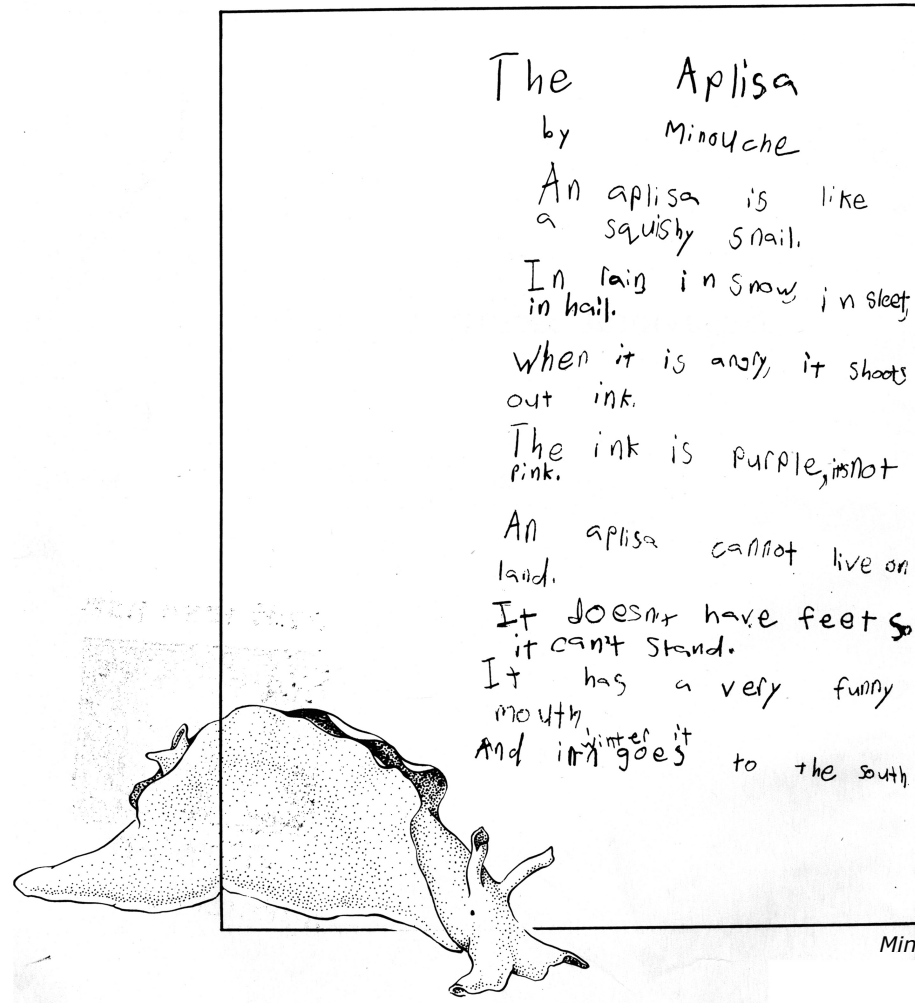 The Aplisa
by Minouche
An aplisa is like
a squishy snail.
In rain in snow, in sleet,
in hail.
When it is angry, it shoots
out ink.
The ink is purple, it's not
pink.
An aplisa cannot live on
land.
It doesn't have feet so
it can't stand.
It has a very funny
mouth
And in winter it goes to the south
Min